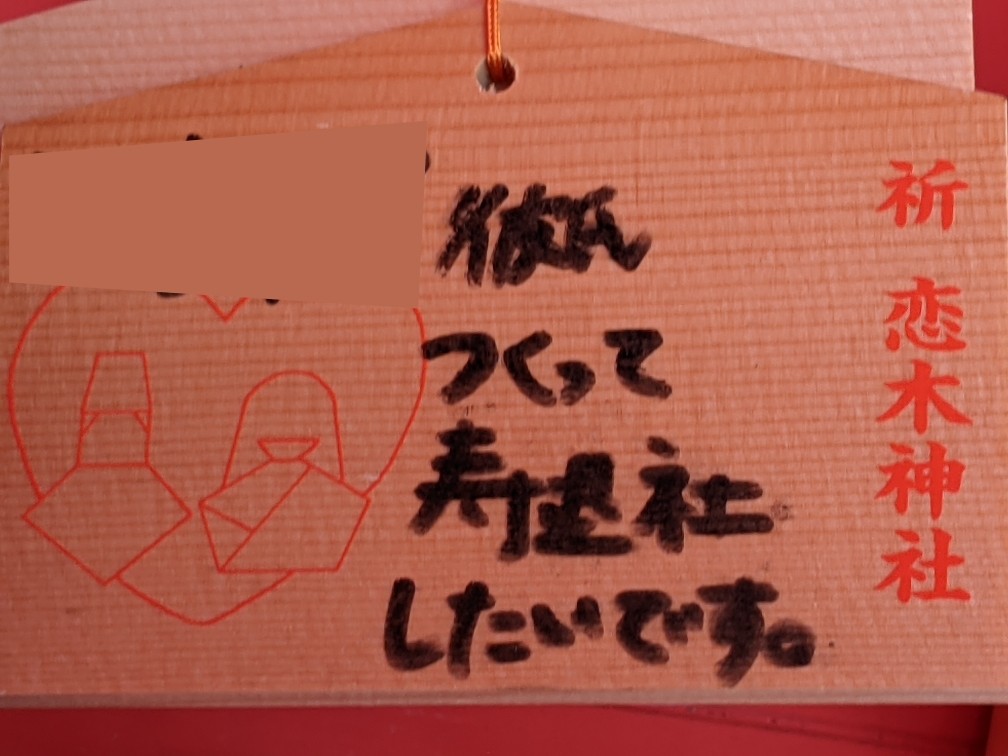 祈 恋木神社
彼氏
つくって
寿退社
したいです。